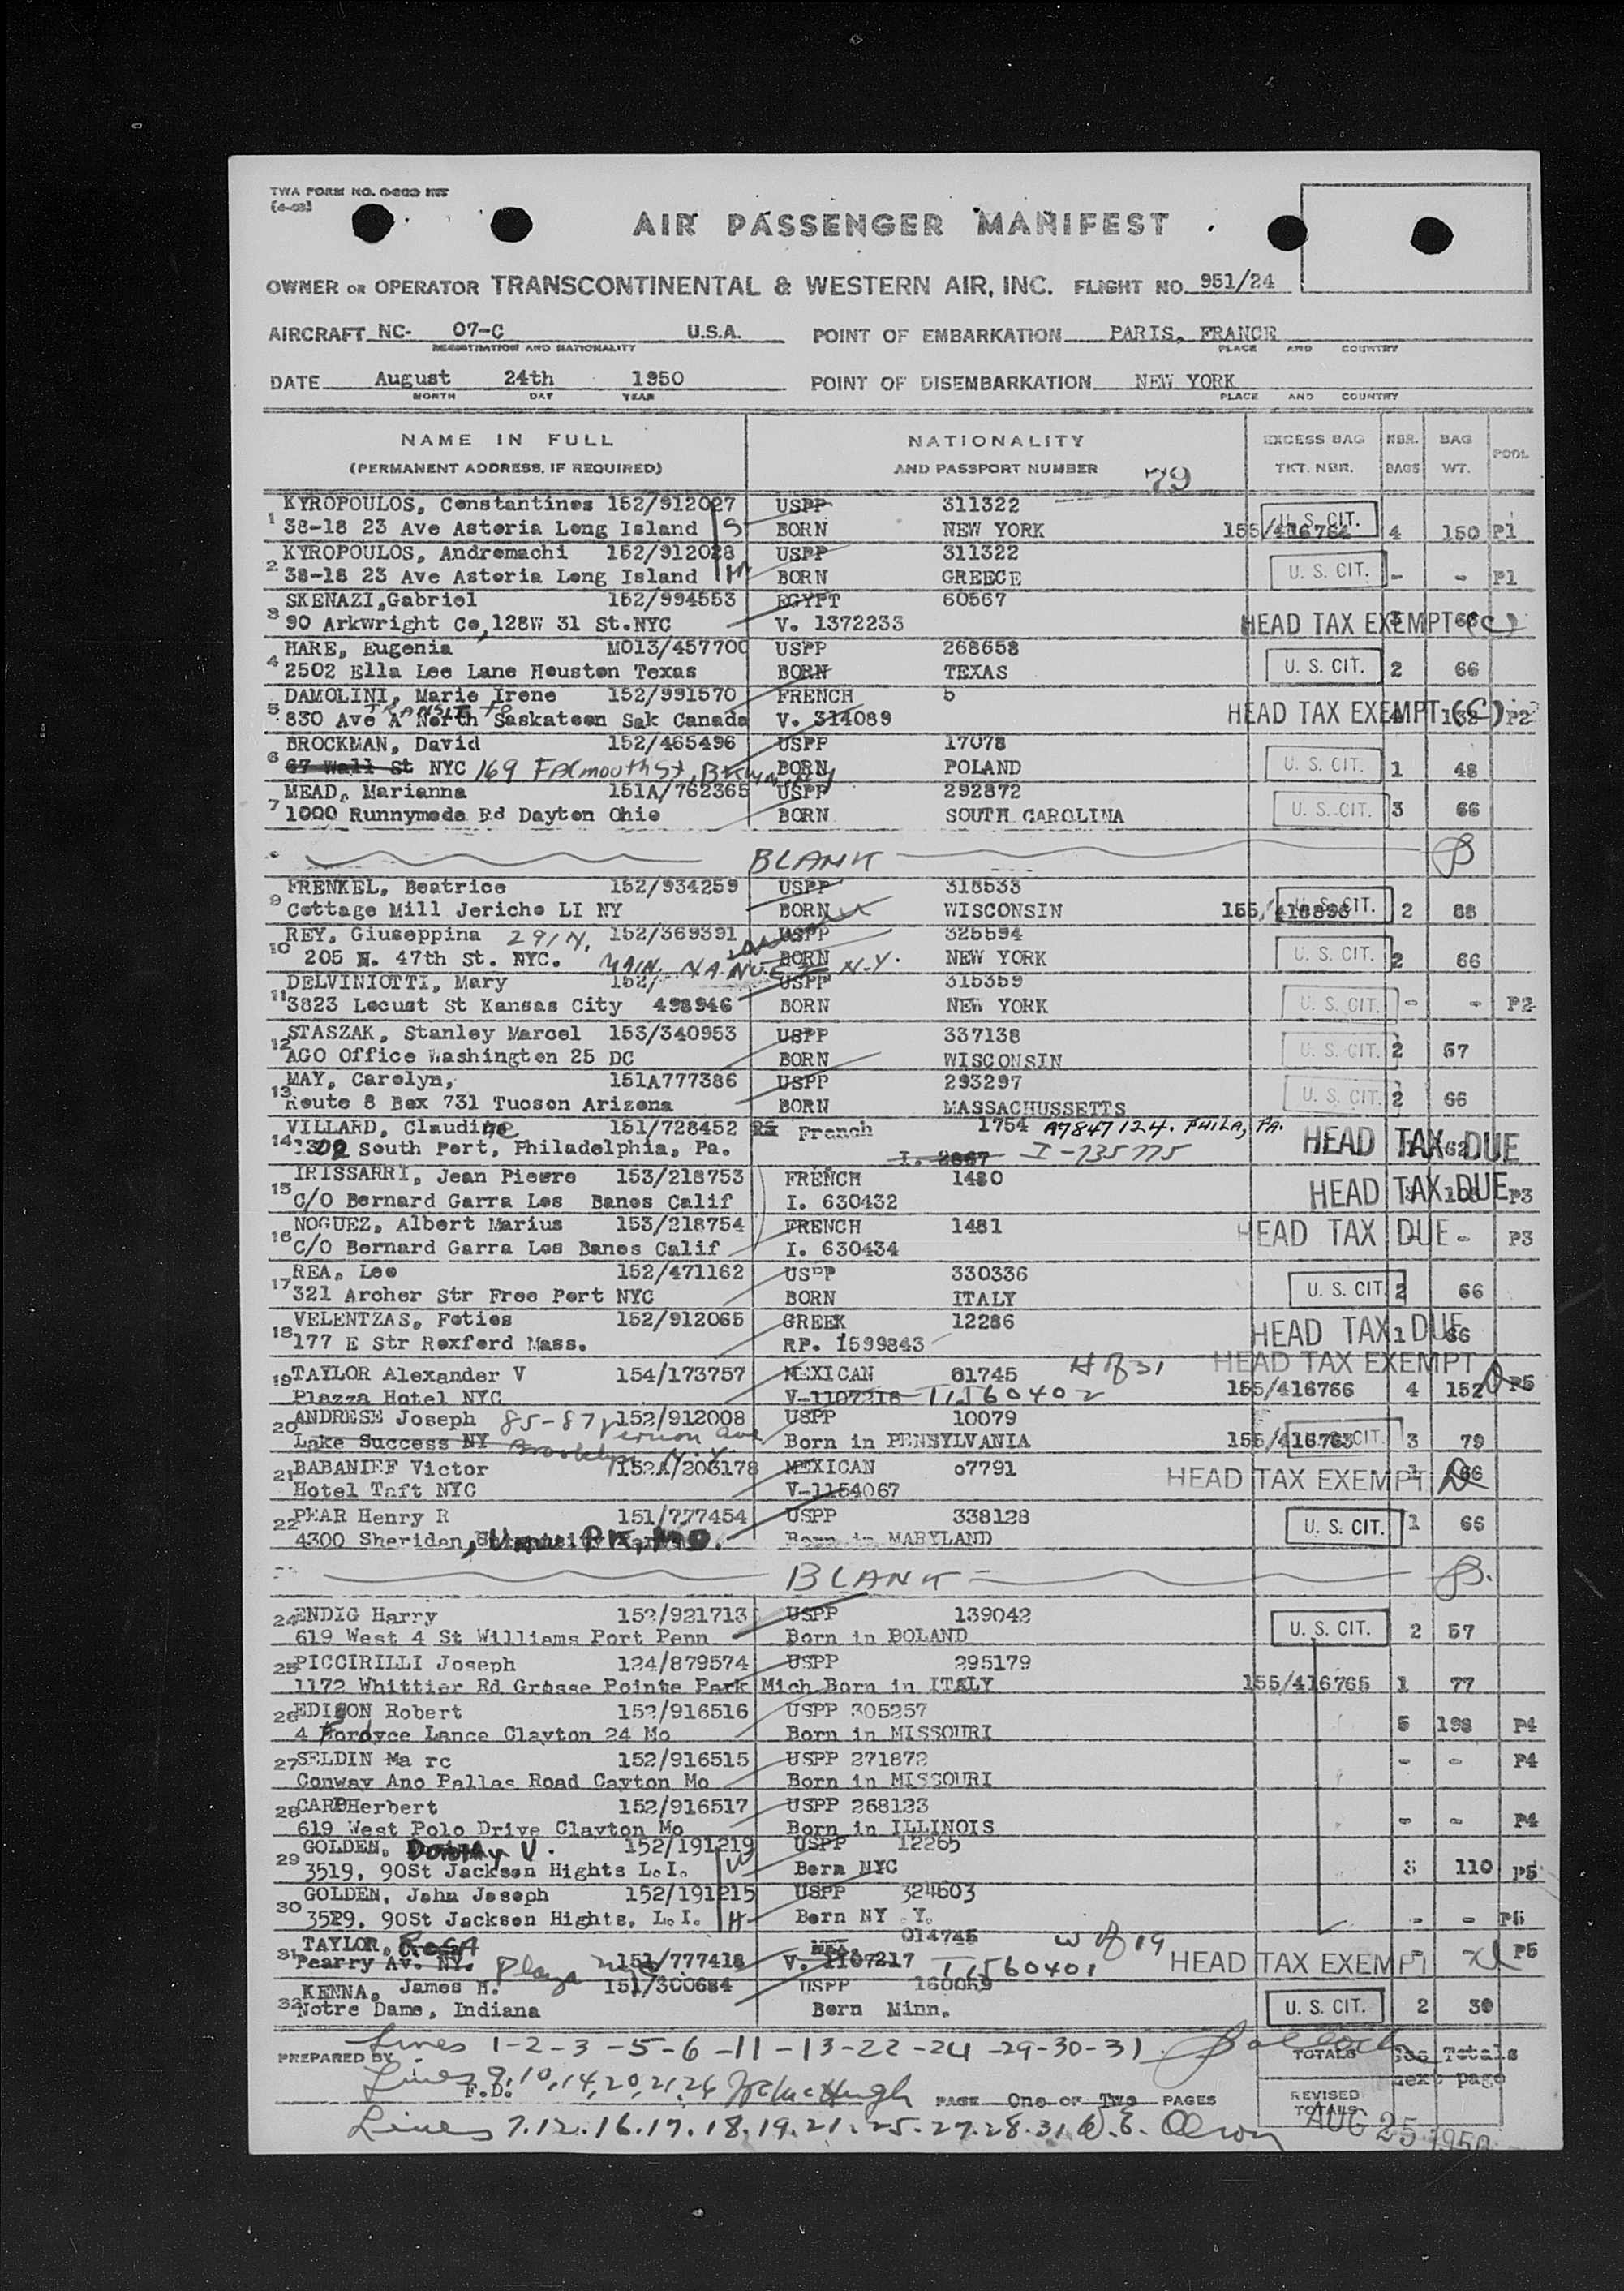 TWA FORM NO.
AIR PASSENGER MANIFEST
OWNER OR OPERATOR TRANSCONTINENTAL & WESTERN AIR, INC. FLIGHT NO. 951/24
AIRCRAFT NC- 07-C U.S.A. POINT OF EMBARKATION PARIS, FRANCE
REGISTRATION AND NATIONALITY PLACE AND COUNTRY
DATE August 24th 1950 POINT OF DISEMBARKATION NEW YORK
MONTH DAY YEAR PLACE AND COUNTRY
NAME IN FULL NATIONALITY EXCESS BAG NBR. BAG POOL
(PERMANENT ADDRESS, IF REQUIRED) AND PASSPORT NUMBER 79 TKT. NBR. BAGS WT.
KYROPOULOS, Constantines 152/912027 USPP 311322 U. S. CIT.
1 38-18 23 Ave Astoria Long Island S BORN NEW YORK 155/416764 4 150 P1
KYROPOULOS, Andromachi 152/912028 USPP 311322
2 38-18 23 Ave Astoria Long Island M BORN GREECE U. S. CIT. - - P1
SKENAZI,Gabriel 152/994553 EGYPT 60567
3 90 Arkwright Co,128W 31 St.NYC V. 1372233 HEAD TAX EXEMPT (C)
HARE, Eugenia M013/457700 USPP 268658
4 2502 Ella Lee Lane Houston Texas BORN TEXAS U. S. CIT. 2 66
DAMOLINI, Marie Irene 152/991570 FRENCH 5
TRANSIT TO
5 830 Ave A North Saskatoon Sak Canada V. 314089 HEAD TAX EXEMPT (C) P2
BROCKMAN, David 152/465496 USPP 17078
6 67 Wall St NYC 169 Falmouth St, Bklyn, NY BORN POLAND U. S. CIT. 1 48
MEAD, Marianna 151A/762365 USPP 292872
7 1000 Runnymede Rd Dayton Ohio BORN SOUTH CAROLINA U. S. CIT. 3 66
BLANK B
FRENKEL, Beatrice 152/934259 USPP 318533
9 Cottage Mill Jericho LI NY BORN WISCONSIN U. S. CIT. 2 88
REY, Giuseppina 291 N. 152/369391 USPP 325594
10 205 N. 47th St. NYC. MAIN. NANUET N.Y. BORN NEW YORK U. S. CIT. 2 66
DELVINIOTTI, Mary 152/ USPP 315359
11 3823 Locust St Kansas City 498946 BORN NEW YORK U. S. CIT. - - P2
STASZAK, Stanley Marcel 153/340953 USPP 337138
12 AGO Office Washington 25 DC BORN WISCONSIN U. S. CIT. 2 57
MAY, Carolyn, 151A777386 USPP 293297
13 Route 8 Box 731 Tucson Arizona BORN MASSACHUSSETTS U. S. CIT. 2 66
VILLARD, Claudine 151/728452 French 1754 A7847124. PHILA, PA.
14 1302 South Port, Philadelphia, Pa. I. 2867 I-735775 HEAD TAX DUE
IRISSARRI, Jean Pierre 153/218753 FRENCH 1480
15 C/O Bernard Garra Los Banos Calif I. 630432 HEAD TAX DUE P3
NOGUEZ, Albert Marius 153/218754 FRENCH 1481
16 C/O Bernard Garra Los Banos Calif I. 630434 HEAD TAX DUE - P3
REA, Leo 152/471162 USPP 330336
17 321 Archer Str Free Port NYC BORN ITALY U. S. CIT. 2 66
VELENTZAS, Foties 152/912065 GREEK 12286
18 177 E Str Roxford Mass. RP. 1599843 HEAD TAX DUE 1 66
19 TAYLOR Alexander V 154/173757 MEXICAN 81745 H of 31 HEAD TAX EXEMPT
Plazza Hotel NYC V-1107218 T1560402 155/416766 4 152 P5
20 ANDRESE Joseph 85-87 Vernon Ave 152/912008 USPP 10079
Lake Success NY Brooklyn N.Y. Born in PENSYLVANIA 155/416763 U. S. CIT. 3 79
21 BABANIEF Victor 152A/206178 MEXICAN 07791
Hotel Taft NYC V-1154067 HEAD TAX EXEMPT 1 66
22 PEAR Henry R 151/777454 USPP 338128
4300 Sheridan, Univ. PK, MD. Born in MARYLAND U. S. CIT. 1 66
BLANK B.
24 ENDIG Harry 152/921713 USPP 139042
619 West 4 St Williams Port Penn Born in POLAND U. S. CIT. 2 57
25 PICCIRILLI Joseph 124/879574 USPP 295179
1172 Whittier Rd Grosse Pointe Park Mich Born in ITALY 155/416765 1 77
26 EDISON Robert 152/916516 USPP 305257
4 Fordyce Lance Clayton 24 Mo Born in MISSOURI 5 198 P4
27 SELDIN Ma rc 152/916515 USPP 271872
Conway Ano Pallas Road Cayton Mo Born in MISSOURI - - P4
28 CARP Herbert 152/916517 USPP 268123
619 West Polo Drive Clayton Mo Born in ILLINOIS - - P4
29 GOLDEN, Dorothy V. 152/191219 USPP 12265
3519, 90St Jackson Hights L.I. W Born NYC 3 110 P5
30 GOLDEN, John Joseph 152/191215 USPP 324603
3529, 90St Jackson Hights, L.I. H Born NY Y. - - P5
31 TAYLOR, ROSA 014745 W of 19
Pearry Av. NY. Plaza 151/777418 V. 1107217 T1560401 HEAD TAX EXEMPT P5
KENNA, James H. 151/300684 USPP 160059
32 Notre Dame, Indiana Born Minn. U. S. CIT. 2 39
Lines 1-2-3-5-6-11-13-22-24-29-30-31
PREPARED BY TOTALS See Totals
next page
Lines 9,10,14,20,21,26
F.D. PAGE One OF Two PAGES REVISED TOTALS
Lines 7.12.16.17.18.19.21.25.27.28.31 W.E. Olson AUG 25 1950